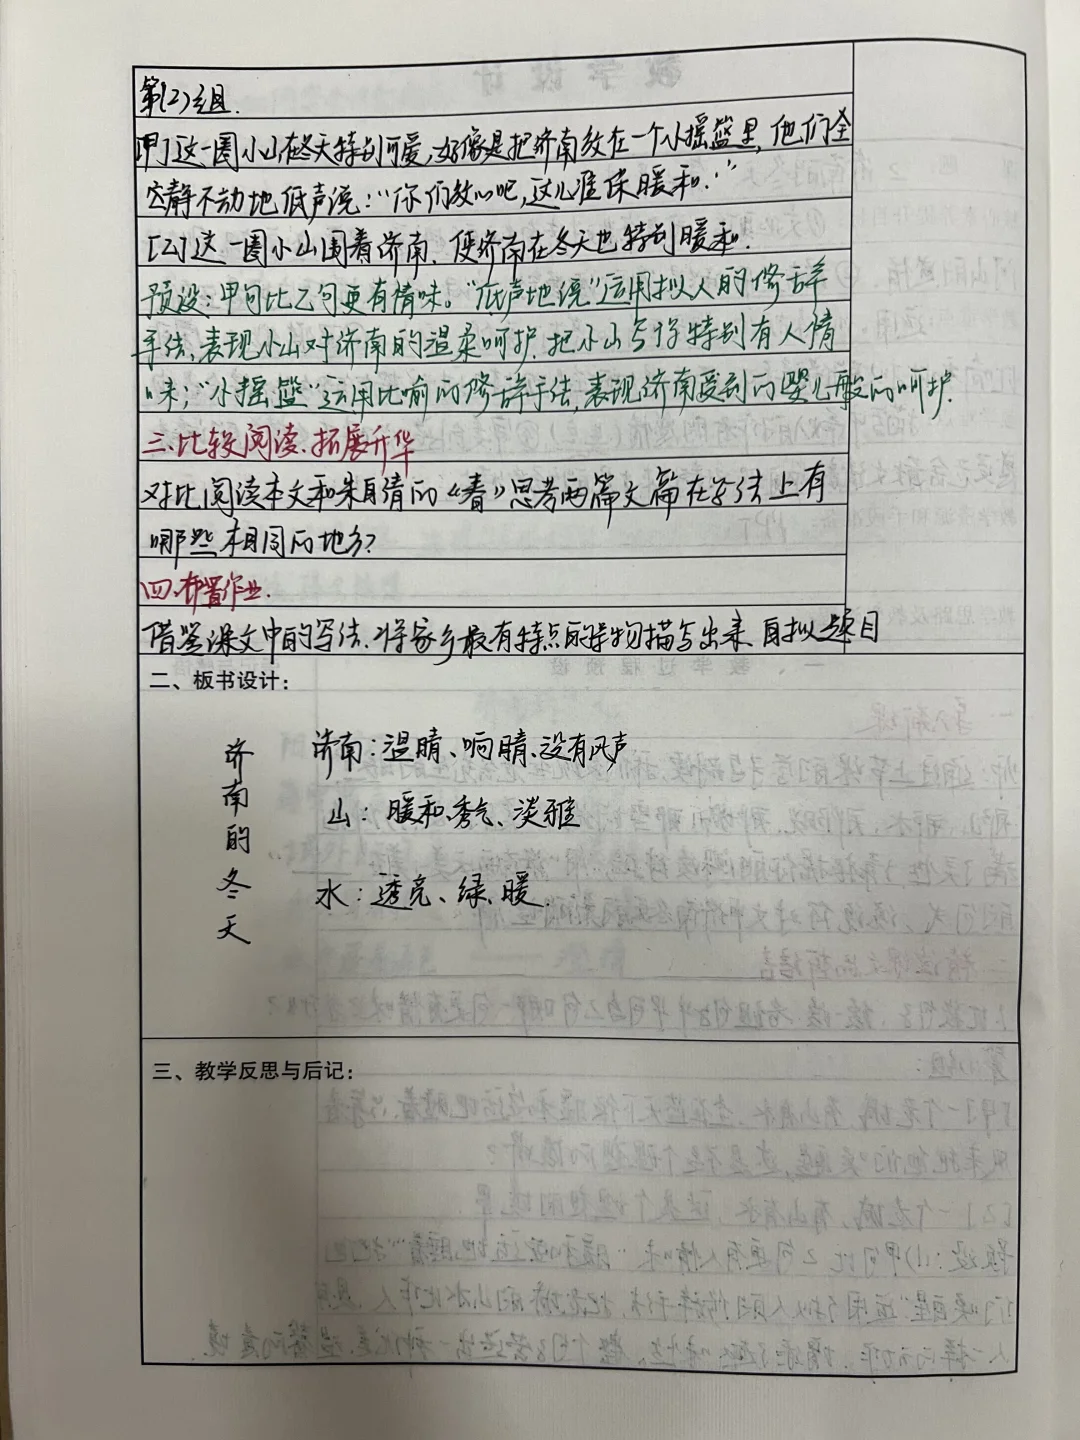 第(2)组.
[甲]这一圈小山在冬天特别可爱,好像是把济南放在一个小摇篮里,他们全
安静不动地低声说:“你们放心吧,这儿准保暖和.”
[乙]这一圈小山围着济南、使济南在冬天也特别暖和.
预设:甲句比乙句更有情味。“低声地说”运用拟人的修辞
手法,表现小山对济南的温柔呵护.把小山写得特别有人情
味;“小摇篮”运用比喻的修辞手法,表现济南受到的婴儿般的呵护.
三.比较阅读.拓展升华
对比阅读本文和朱自清的《春》思考两篇文篇在写法上有
哪些相同的地方?
四.布置作业.
借鉴课文中的写法.将家乡最有特点的景物描写出来.自拟题目
二、板书设计:
济南的冬天
济南:温晴、响晴、没有风声
山:暖和、秀气、淡雅
水:透亮、绿、暖.
三、教学反思与后记: